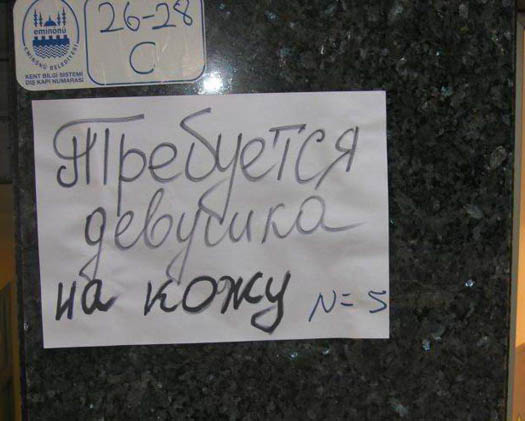 eminönü
EMİNÖNÜ BELEDİYESİ
KENT BİLGİ SİSTEMİ
DIŞ KAPI NUMARASI
26-28
C
Требуется
девушка
на кожу N=5